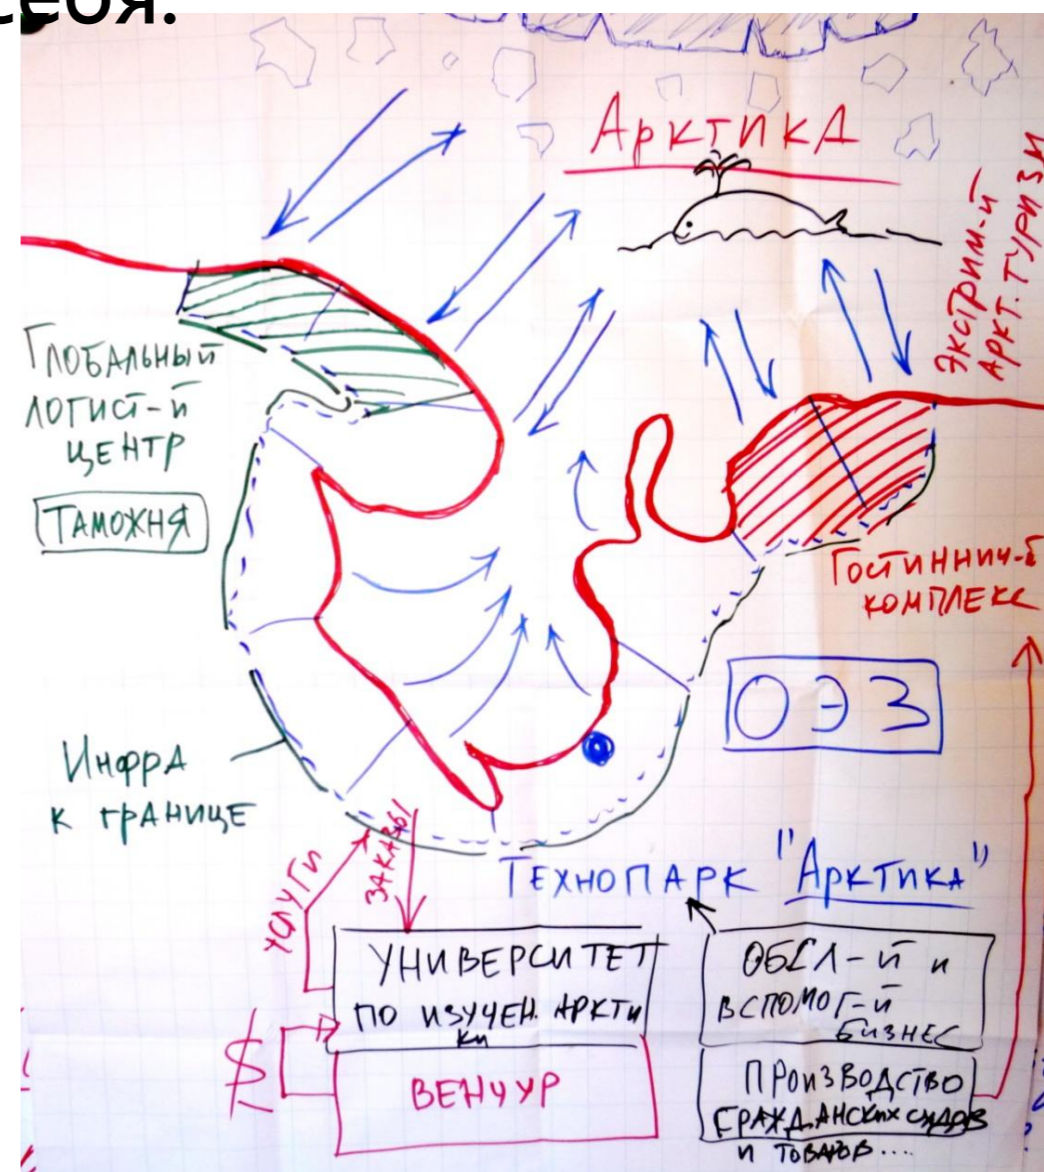 себя.
АРКТИКА
ЭКСТРИМ-Й
АРКТ. ТУРИЗМ
ГЛОБАЛЬНЫЙ
ЛОГИСТ-Й
ЦЕНТР
ТАМОЖНЯ
ГОСТИННИЧ-Й
КОМПЛЕКС
ОЭЗ
ИНФРА
К ГРАНИЦЕ
УСЛУГИ
ЗАКАЗЫ
ТЕХНОПАРК "АРКТИКА"
УНИВЕРСИТЕТ
ПО ИЗУЧЕН. АРКТИ
КИ
$
ВЕНЧУР
ОБСЛ-Й И
ВСПОМОГ-Й
БИЗНЕС
ПРОИЗВОДСТВО
ГРАЖДАНСКИХ СУДОВ
И ТОВАРОВ....